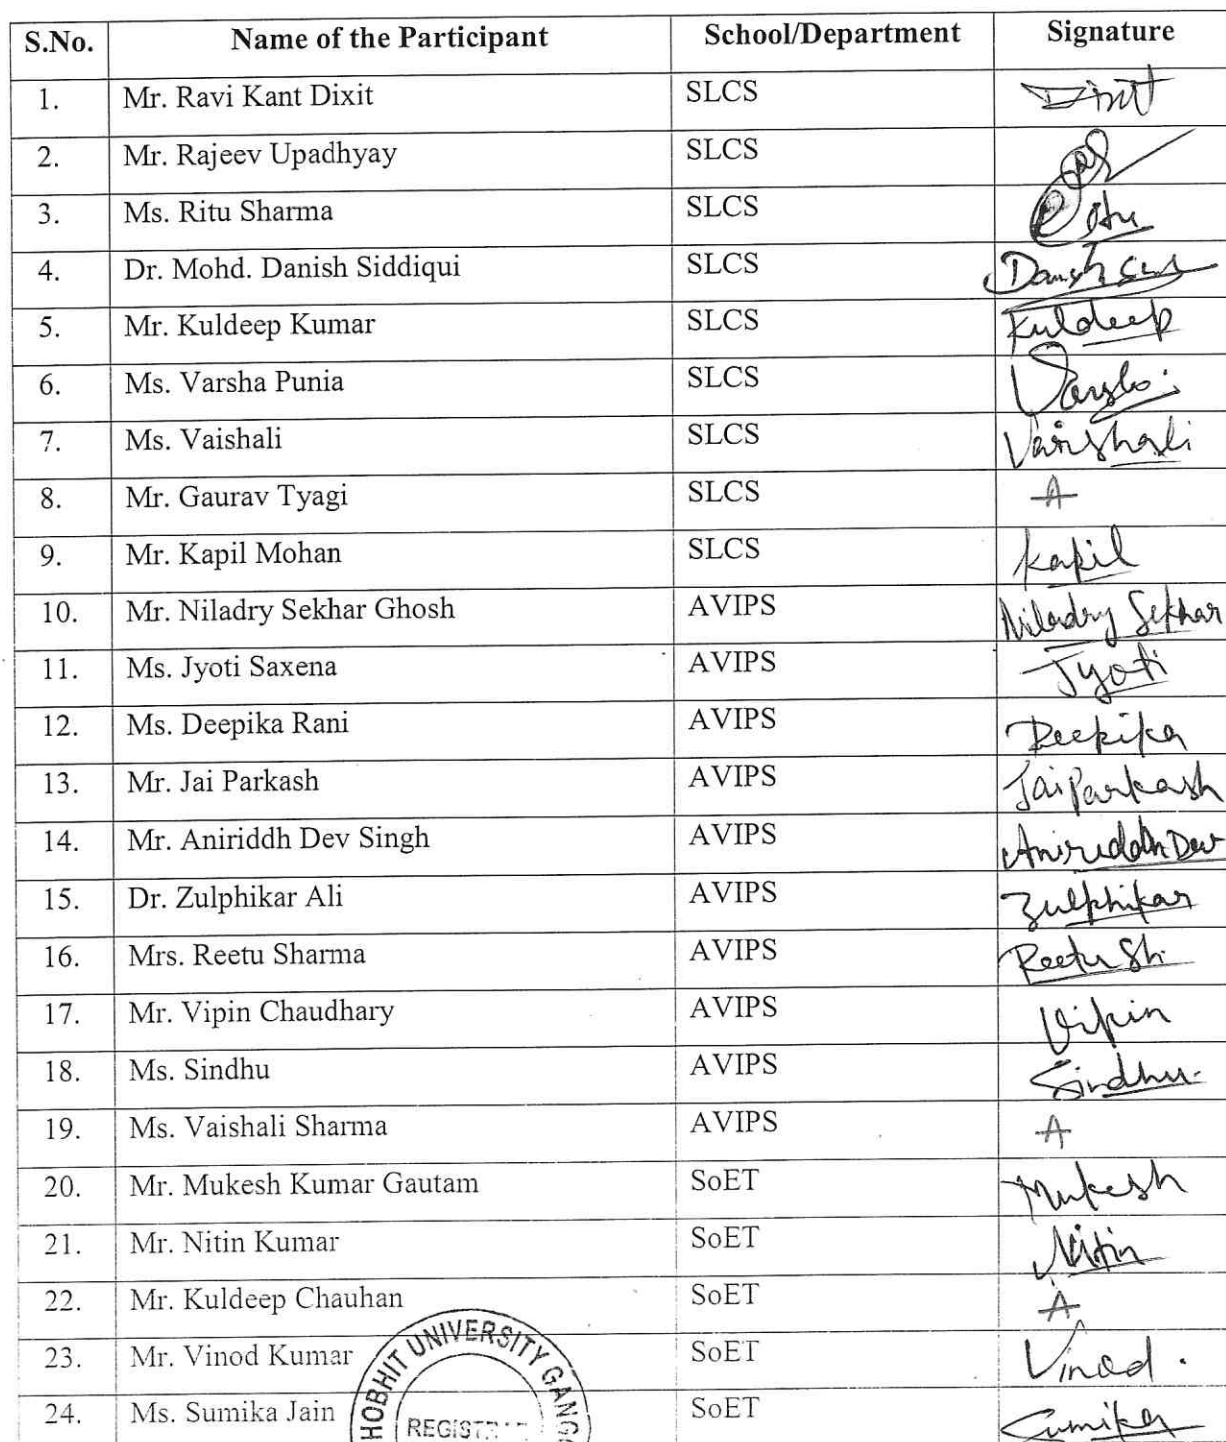 S.No. Name of the Participant School/Department Signature
1. Mr. Ravi Kant Dixit SLCS Dixit
2. Mr. Rajeev Upadhyay SLCS
3. Ms. Ritu Sharma SLCS
4. Dr. Mohd. Danish Siddiqui SLCS Danish
5. Mr. Kuldeep Kumar SLCS Kuldeep
6. Ms. Varsha Punia SLCS Varsha
7. Ms. Vaishali SLCS Vaishali
8. Mr. Gaurav Tyagi SLCS A
9. Mr. Kapil Mohan SLCS Kapil
10. Mr. Niladry Sekhar Ghosh AVIPS Niladry Sekhar
11. Ms. Jyoti Saxena AVIPS Jyoti
12. Ms. Deepika Rani AVIPS Deepika
13. Mr. Jai Parkash AVIPS Jai Parkash
14. Mr. Aniriddh Dev Singh AVIPS Aniruddh Dev
15. Dr. Zulphikar Ali AVIPS Zulphikar
16. Mrs. Reetu Sharma AVIPS Reetu Sh
17. Mr. Vipin Chaudhary AVIPS Vipin
18. Ms. Sindhu AVIPS Sindhu
19. Ms. Vaishali Sharma AVIPS A
20. Mr. Mukesh Kumar Gautam SoET Mukesh
21. Mr. Nitin Kumar SoET Nitin
22. Mr. Kuldeep Chauhan SoET A
23. Mr. Vinod Kumar SoET Vinod
24. Ms. Sumika Jain SoET Sumika
HOBHIT UNIVERSITY GANG